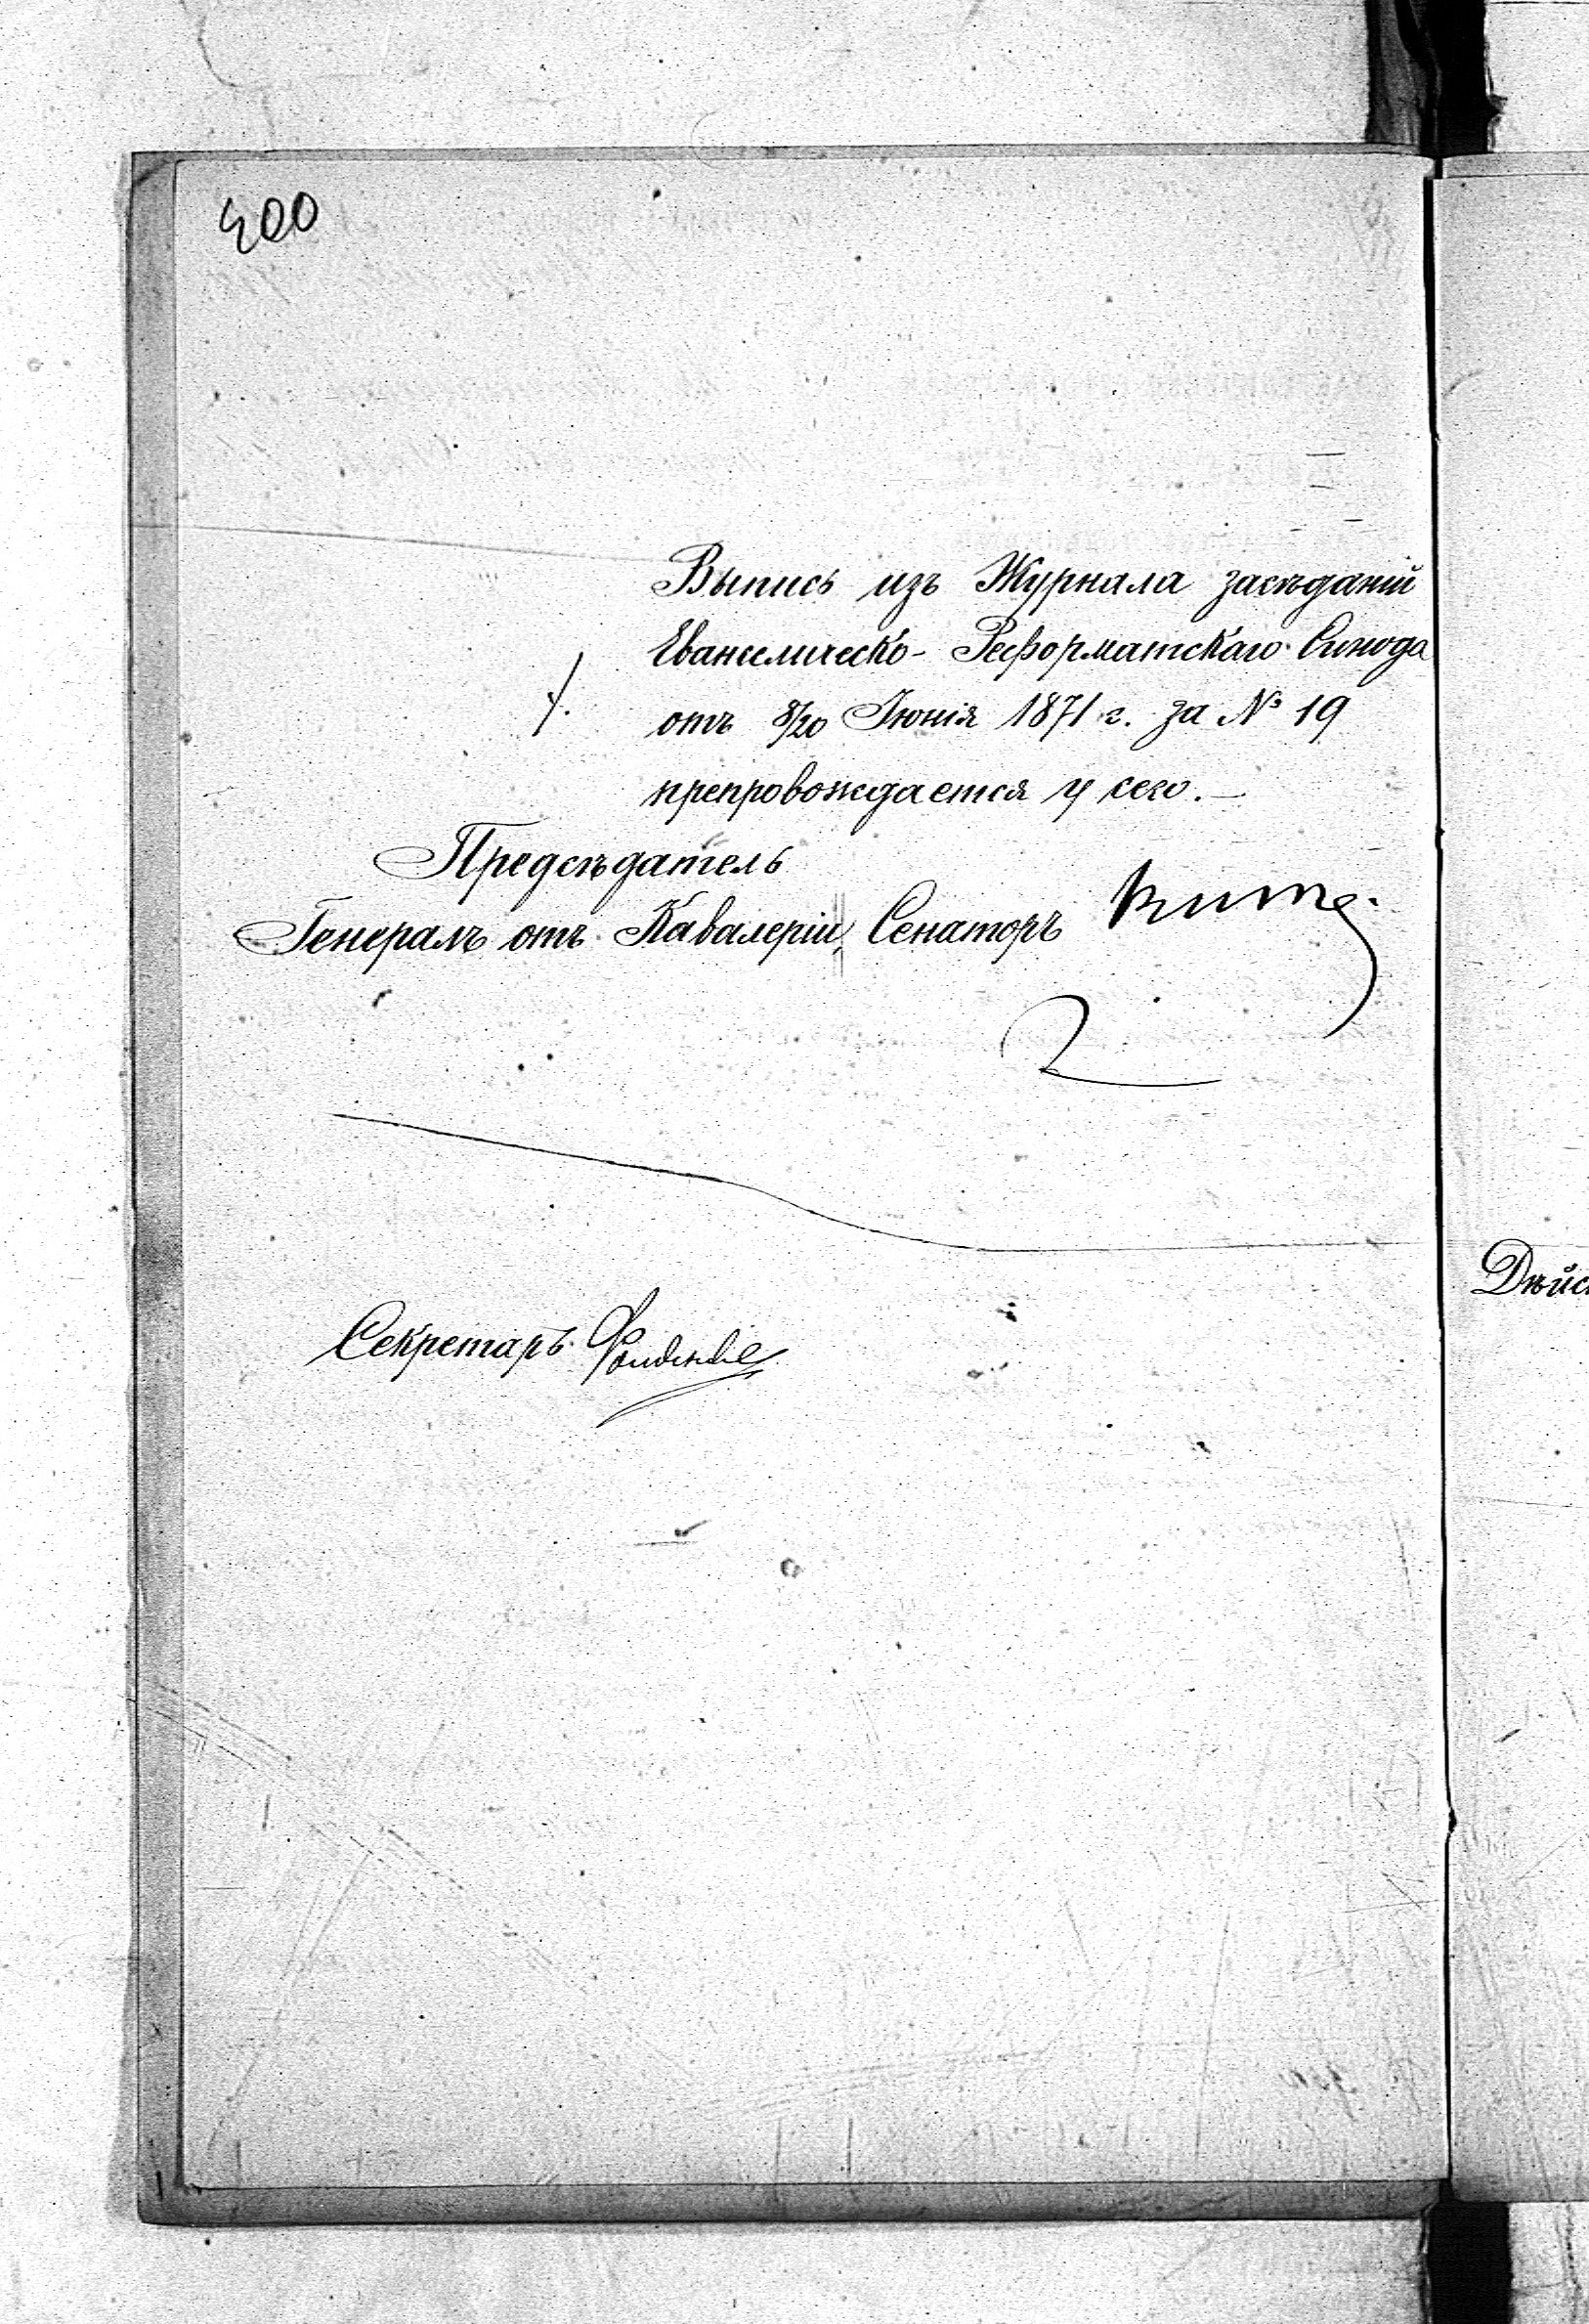 400
Выпись изъ Журнала засѣданій
Евангелическо-Реформатскаго Синода
./.
отъ 8/20 Іюня 1871 г. за № 19
препровождается у сего.—
Предсѣдатель
Генералъ отъ Кавалеріи, Сенаторъ
Секретарь
Дѣйс